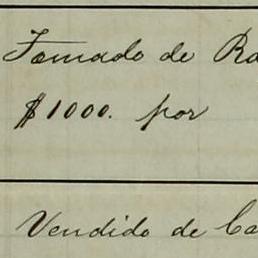 Tomado de Ra
$1000. por
Vendido de Ca